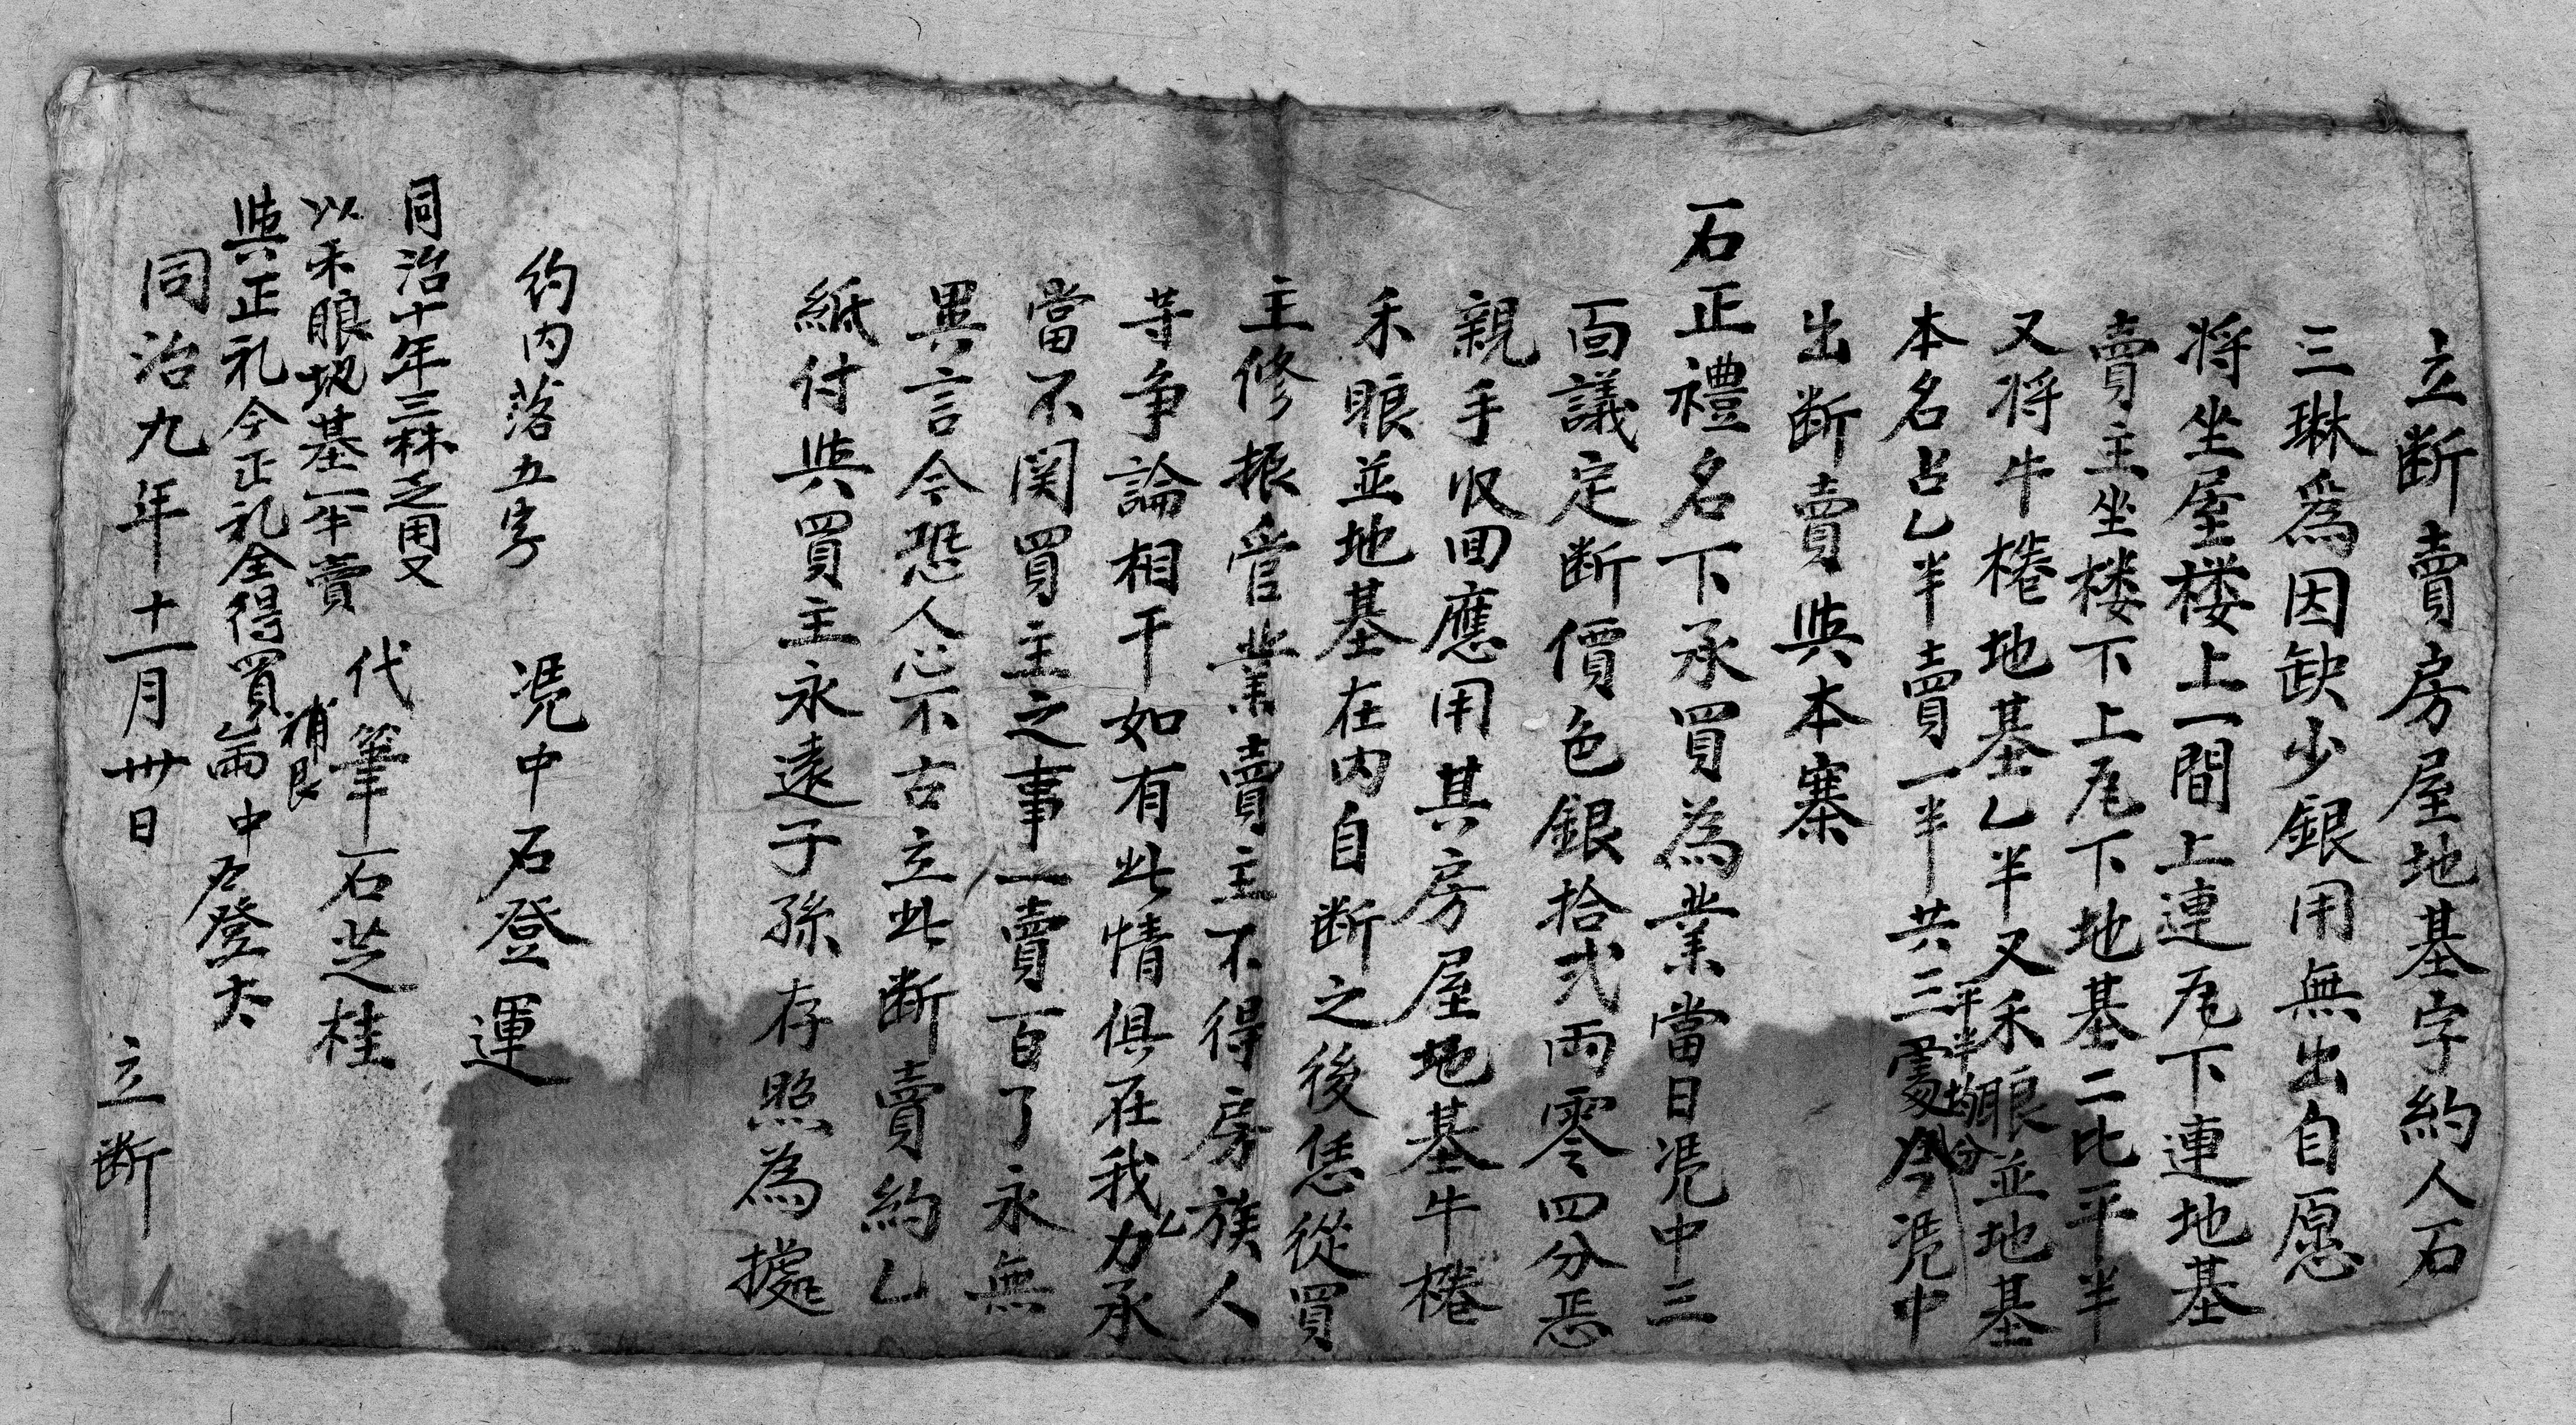 立断賣房屋地基字約人石
三琳爲因缺少銀用無出自愿
将坐屋楼上一間上連瓦下連地基
賣主坐楼下上瓦下地基二比平半
又将牛棬地基乙半又禾眼並地基
平半均分
本名占乙半賣一半共三處今凴中
出断賣與本寨
石正禮名下承買為業當日凴中三
面議定断價色銀拾弍両零四分
親手収回應用其房屋地基牛棬
禾眼並地基在内自断之後恁從買
主修振管業賣主不得房族人
等争論相干如有此情俱在我力承
當不関買主之事一賣百了永無
異言今恐人心不古立此断賣約乙
紙付與買主永遠子孫存照為據
約内落五字
凴中石登運
同治十年三林乏用又
以禾眼地基一半賣
與正礼今正礼全得買
補艮
中石登太
代筆石芝桂
同治九年十一月卅日 立断